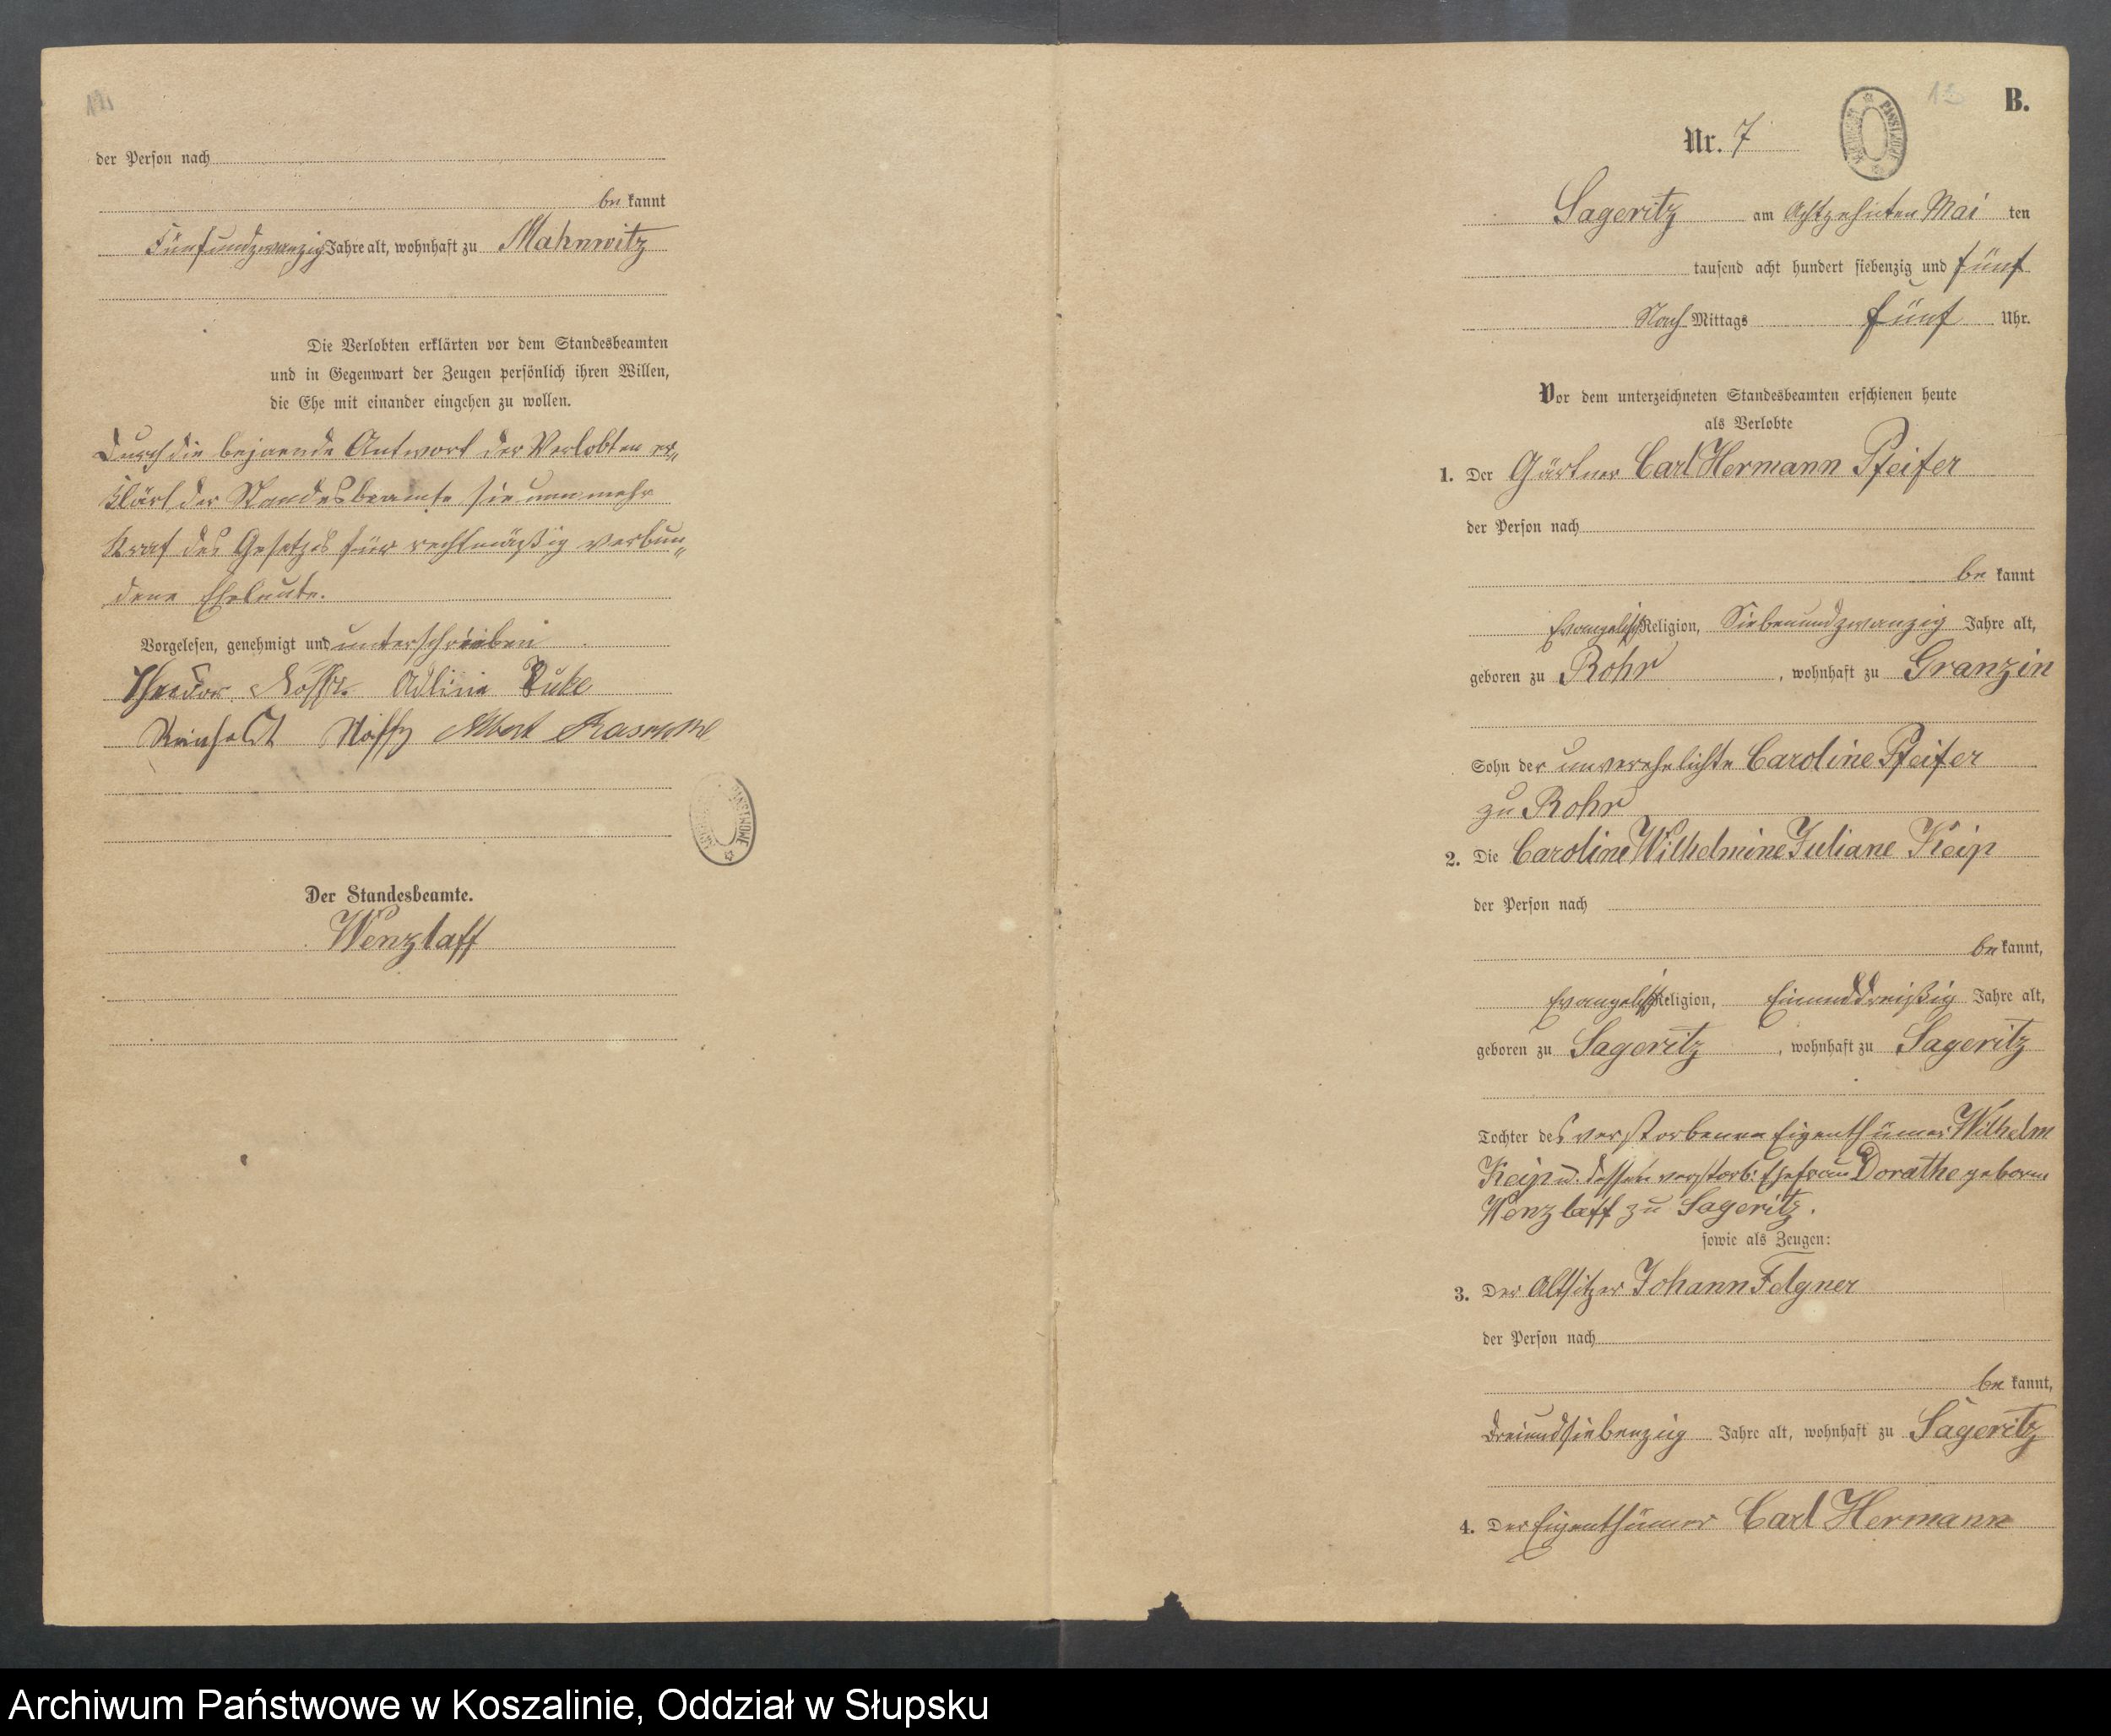 der Person nach
be kannt
Fünfundzwanzig Jahre alt, wohnhaft zu Mahnwitz
Die Verlobten erklärten vor dem Standesbeamten
und in Gegenwart der Zeugen persönlich ihren Willen,
die Ehe mit einander eingehen zu wollen.
Durch die bejaende Antwort der Verlobten er„
klärt der Standesbeamte sie nunmehr
Kraft des Gesetzes für rechtmäßig verbun„
dene Eheleute.
Vorgelesen, genehmigt und unterschrieben
Theodor Adline
Reinholdt Albert
Der Standesbeamte.
Wenzlaff
B.
Nr. 7
Sageritz am Achtzehnten Mai ten
tausend acht hundert siebenzig und fünf
Nach Mittags fünf Uhr.
Vor dem unterzeichneten Standesbeamten erschienen heute
als Verlobte
1. Der Gärtner Carl Hermann Pfeifer
der Person nach
be kannt
Evangelisch Religion, Siebenundzwanzig Jahre alt,
geboren zu Rohr, wohnhaft zu Granzin
Sohn der unverehelichte Caroline Pfeifer
zu Rohr
2. Die Caroline Wilhelmine Juliane Keip
der Person nach
be kannt,
Evangelisch Religion, Einunddreißig Jahre alt,
geboren zu Sageritz, wohnhaft zu Sageritz
Tochter des verstorbenen Eigenthümer Wilhelm
Keip u. dessen verstorb: Ehefrau Dorathe geborne
Wenzlaff zu Sageritz.
sowie als Zeugen:
3. Der Altsitzer Johann Felgner
der Person nach
be kannt,
Dreiundsiebenzig Jahre alt, wohnhaft zu Sageritz
4. Der Eigenthümer Carl Hermann
Archiwum Państwowe w Koszalinie, Oddział w Słupsku